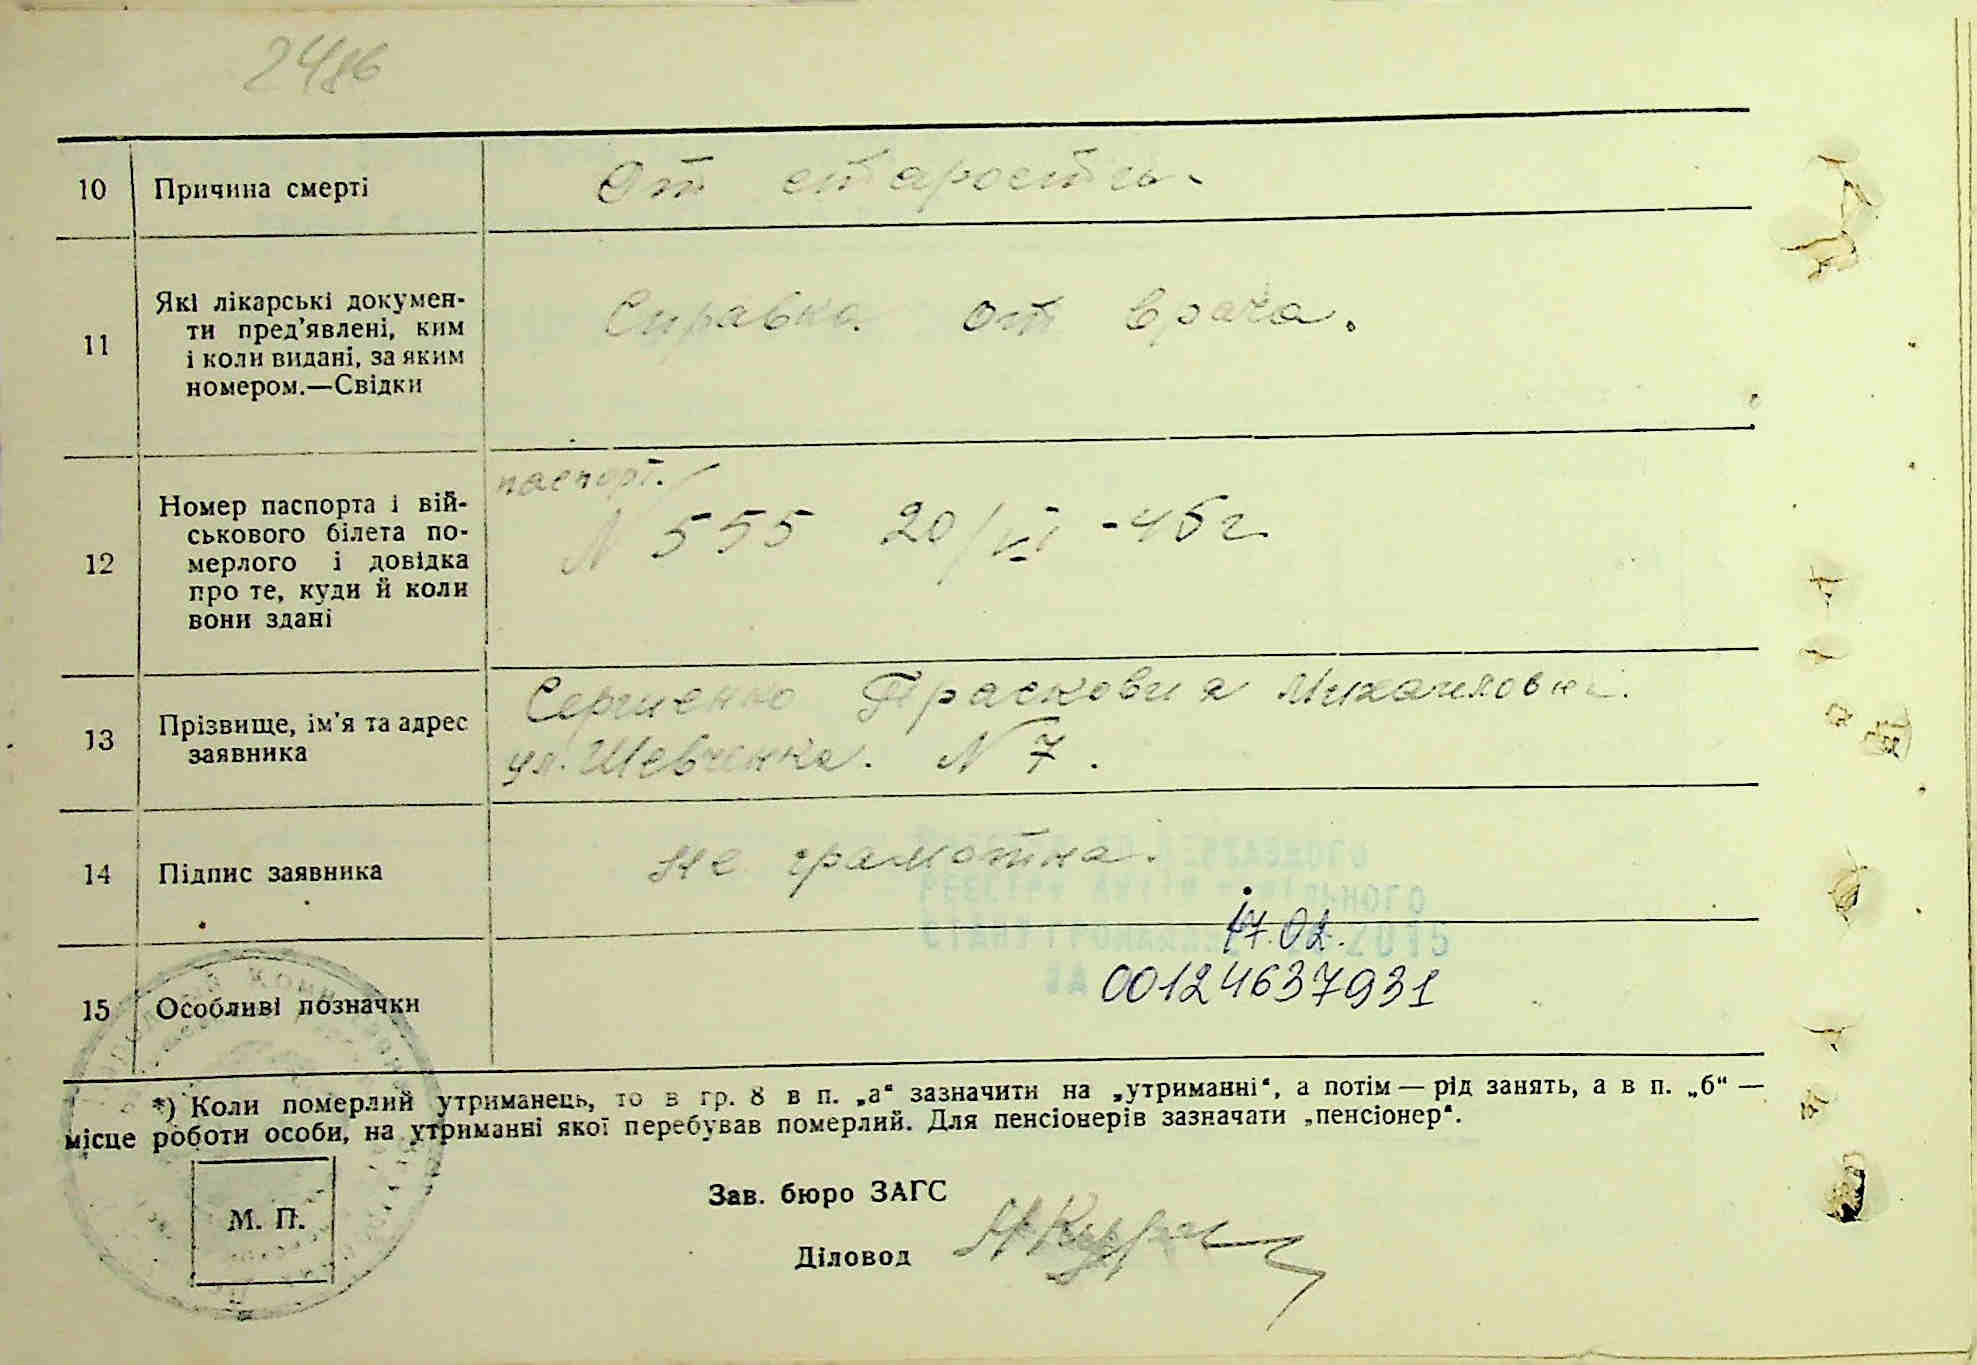 2486
10 Причина смерті От старость.
11 Які лікарські докумен-
ти пред'явлені, ким
і коли видані, за яким
номером.—Свідки
Справка от врача.
12 Номер паспорта і вій-
ськового білета по-
мерлого і довідка
про те, куди й коли
вони здані
паспорт.
N 555 20/VI -45г
13 Прізвище, ім'я та адрес
заявника
Сергиенко Прасковия Михайловна.
ул. Шевченка. N 7.
14 Підпис заявника не грамотна.
15 Особливі позначки
17.02.
00124637931
*) Коли померлий утриманець, то в гр. 8 в п. „а“ зазначити на „утриманні“, а потім — рід занять, а в п. „б“ —
місце роботи особи, на утриманні якої перебував померлий. Для пенсіонерів зазначати „пенсіонер“.
М. П.
Зав. бюро ЗАГС
Діловод